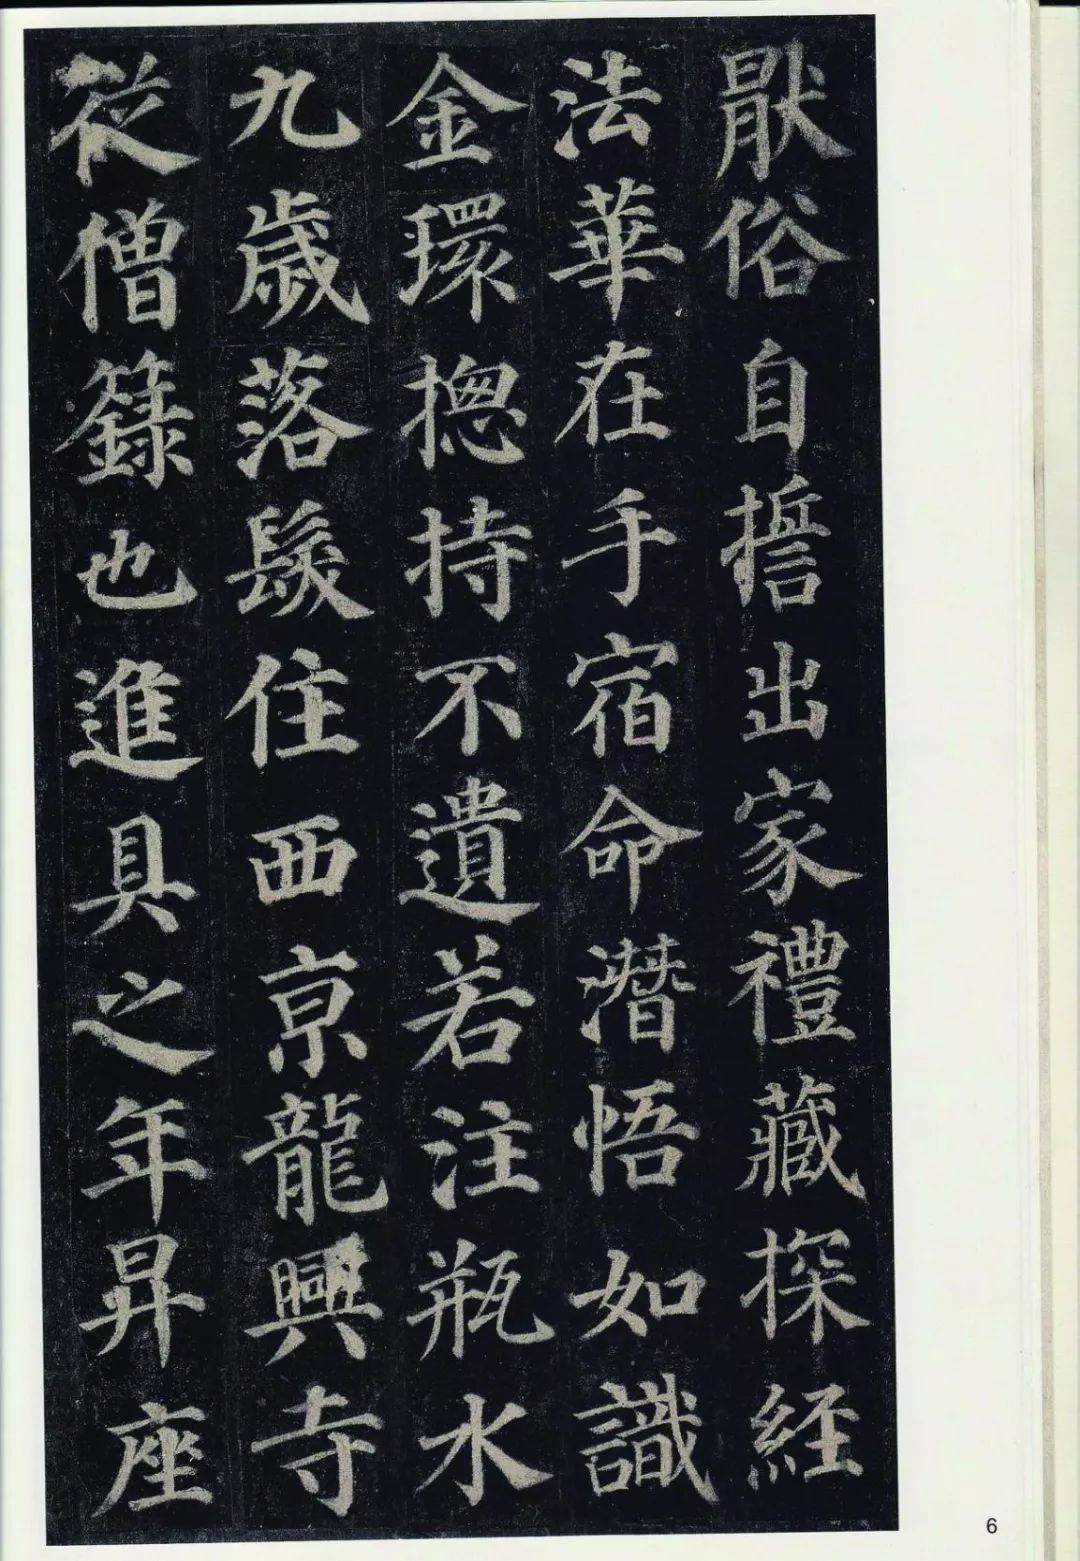 猒俗自撎出家禮藏探經
法華在手宿命潛悟如識
金環揔持不遺若注瓶水
九歲落髮住西京龍興寺
從僧籙也進具之年昇座
6